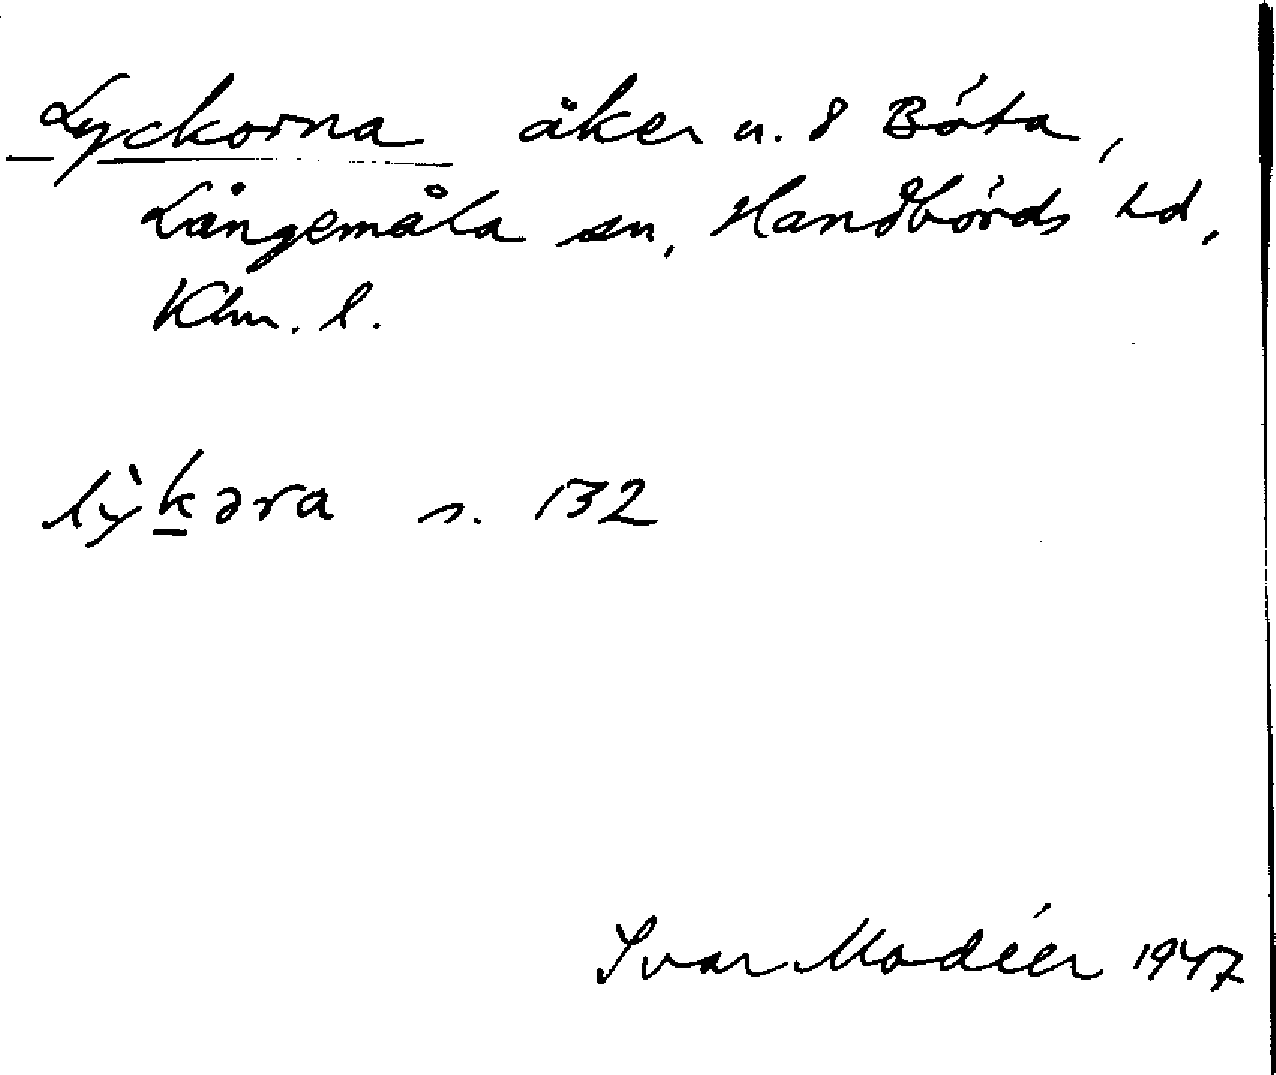 Lyckorna åker u. 8 Böta,
Långemåla sn, Handbörds hd,
Klm. l.
lỳkəra s. 132
Ivar Modéer 1947